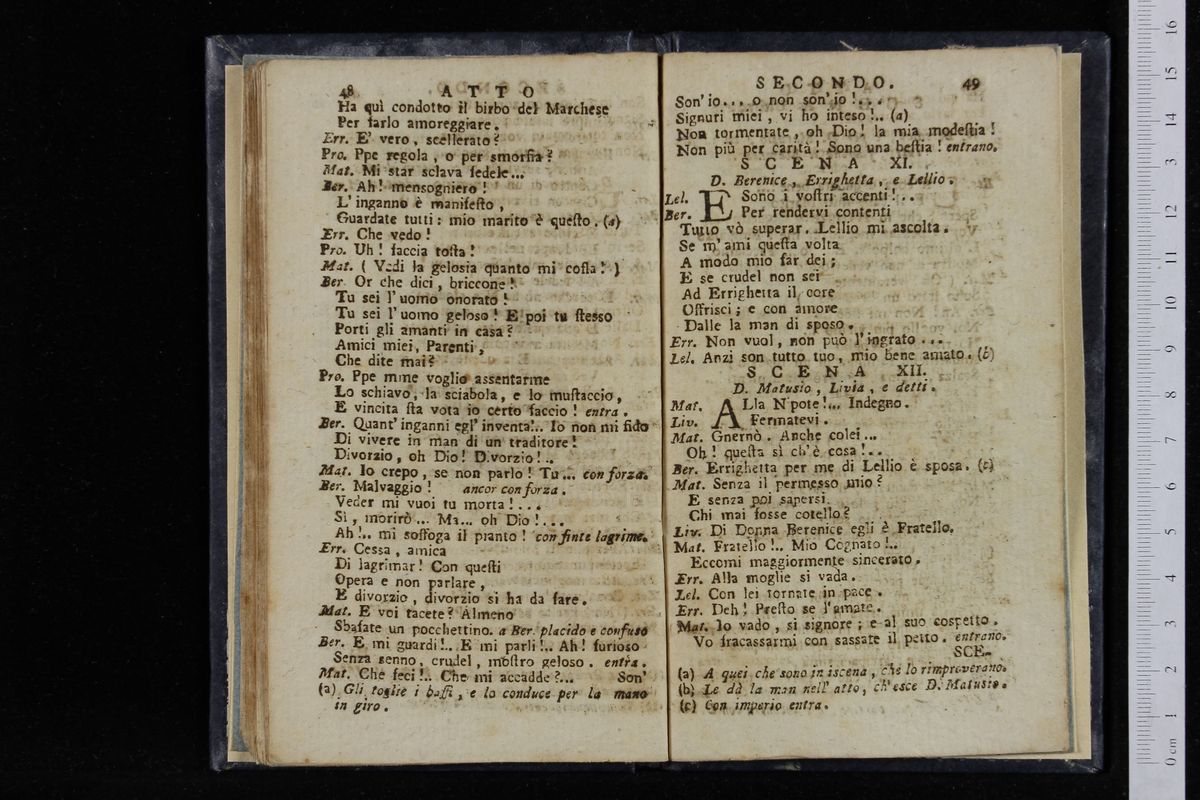 48 ATTO
Ha quì condotto il birbo del Marchese
Per farlo amoreggiare.
Err. E' vero, scellerato?
Pro. Ppe regola, o per smorfia?
Mat. Mi star sclava fedele...
Ber. Ah! mensogniero!
L'inganno è manifesto,
Guardate tutti: mio marito è questo. (a)
Err. Che vedo!
Pro. Uh! faccia tosta!
Mat. ( Vedi la gelosia quanto mi costa! )
Ber Or che dici, briccone!
Tu sei l'uomo onorato!
Tu sei l'uomo geloso! E poi tu stesso
Porti gli amanti in casa?
Amici miei, Parenti,
Che dite mai?
Pro. Ppe mme voglio assentarme
Lo schiavo, la sciabola, e lo mustaccio,
E vincita sta vota io certo faccio! entra.
Ber. Quant'inganni egl'inventa!.. Io non mi fido
Di vivere in man di un traditore!
Divorzio, oh Dio! D.vorzio!..
Mat. Io crepo, se non parlo! Tu... con forza.
Ber. Malvaggio! ancor con forza.
Veder mi vuoi tu morta!...
Sì, morirò... Ma... oh Dio!...
Ah!.. mi soffoga il pianto! con finte lagrime.
Err. Cessa, amica
Di lagrimar! Con questi
Opera e non parlare,
E divorzio, divorzio si ha da fare.
Mat. E voi tacete? Almeno
Sbafate un pocchettino. a Ber. placido e confuso
Ber. E mi guardi!.. E mi parli!.. Ah! furioso
Senza senno, crudel, mostro geloso. entra.
Mat. Che feci!.. Che mi accadde?... Son'
(a) Gli toglie i baffi, e lo conduce per la mano
in giro.
SECONDO. 49
Son'io... o non son'io!...
Signuri miei, vi ho inteso!.. (a)
Non tormentate, oh Dio! la mia modestia!
Non più per carità! Sono una bestia! entrano.
SCENA XI.
D. Berenice, Errighetta, e Lellio.
Lel. E Sono i vostri accenti!..
Ber. Per rendervi contenti
Tutto vò superar. Lellio mi ascolta.
Se m'ami questa volta
A modo mio far dei;
E se crudel non sei
Ad Errighetta il core
Offrisci; e con amore
Dalle la man di sposo.
Err. Non vuol, non può l'ingrato...
Lel. Anzi son tutto tuo, mio bene amato. (b)
SCENA XII.
D. Matusio, Livia, e detti.
Mat. ALla N pote!... Indegno.
Liv. Fermatevi.
Mat. Gnernò. Anche colei...
Oh! questa sì ch'è cosa!..
Ber. Errighetta per me di Lellio è sposa. (c)
Mat. Senza il permesso mio?
E senza poi sapersi
Chi mai fosse cotello?
Liv. Di Donna Berenice egli è Fratello.
Mat. Fratello!.. Mio Cognato!..
Eccomi maggiormente sincerato.
Err. Alla moglie si vada.
Lel. Con lei tornate in pace.
Err. Deh! Presto se l'amate.
Mat. Io vado, si signore; e al suo cospetto.
Vo fracassarmi con sassate il petto. entrano.
SCE-
(a) A quei che sono in iscena, che lo rimproverano.
(b) Le dà la man nell'atto, ch'esce D. Matusio.
(c) Con imperio entra.